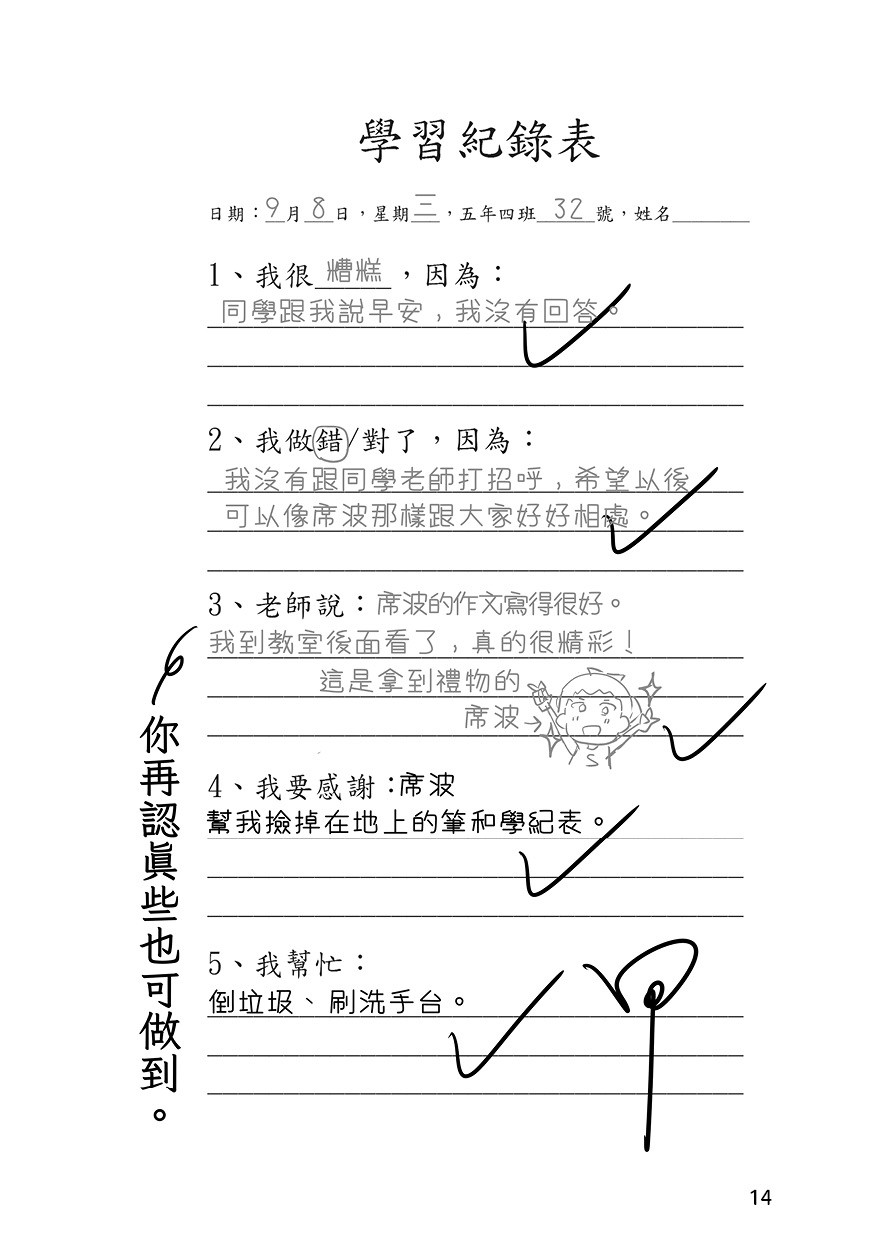 學習紀錄表
日期：9月8日，星期三，五年四班32號，姓名
1、我很糟糕，因為：
同學跟我說早安，我沒有回答。
2、我做錯/對了，因為：
我沒有跟同學老師打招呼，希望以後
可以像席波那樣跟大家好好相處。
3、老師說：席波的作文寫得很好。
我到教室後面看了，真的很精彩！
這是拿到禮物的
席波→
4、我要感謝：席波
幫我撿掉在地上的筆和學紀表。
5、我幫忙：
倒垃圾、刷洗手台。
甲
你再認真些也可做到。
14